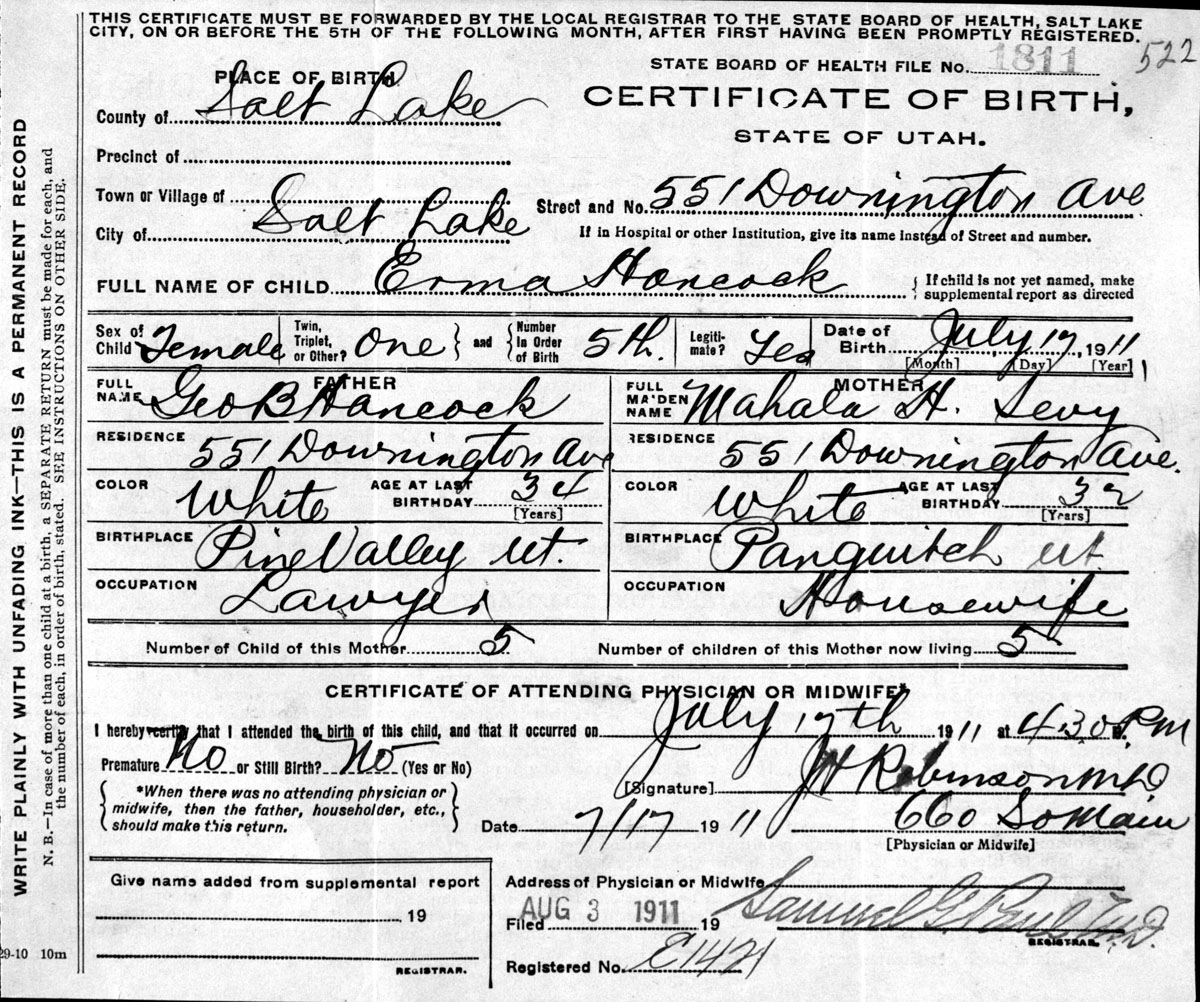 THIS CERTIFICATE MUST BE FORWARDED BY THE LOCAL REGISTRAR TO THE STATE BOARD OF HEALTH, SALT LAKE
CITY, ON OR BEFORE THE 5TH OF THE FOLLOWING MONTH, AFTER FIRST HAVING BEEN PROMPTLY REGISTERED.
522
STATE BOARD OF HEALTH FILE No. 1811
PLACE OF BIRTH
CERTIFICATE OF BIRTH,
STATE OF UTAH.
County of Salt Lake
Precinct of
Town or Village of
Street and No. 551 Downington Ave
City of Salt Lake
If in Hospital or other Institution, give its name instead of Street and number.
FULL NAME OF CHILD Erma Hancock { If child is not yet named, make
supplemental report as directed
Sex of Child Female Twin, Triplet, or Other? One } and { Number in Order of Birth 5th. Legiti-mate? Yes Date of Birth July 17, 1911
[Month] [Day] [Year]
FATHER MOTHER
FULL NAME Geo B Hancock FULL MAIDEN NAME Mahala H. Levy
RESIDENCE 551 Downington Ave RESIDENCE 551 Downington Ave.
COLOR White AGE AT LAST BIRTHDAY 34 [Years] COLOR White AGE AT LAST BIRTHDAY 32 [Years]
BIRTHPLACE Pine Valley Ut. BIRTHPLACE Panguitch Ut.
OCCUPATION Lawyer OCCUPATION Housewife
Number of Child of this Mother 5 Number of children of this Mother now living 5
CERTIFICATE OF ATTENDING PHYSICIAN OR MIDWIFE*
I hereby certify that I attended the birth of this child, and that it occurred on July 17th 1911 at 4.30 P.M
Premature No or Still Birth? No (Yes or No)
[Signature] J H Robinson M.D
{ *When there was no attending physician or
midwife, then the father, householder, etc.,
should make this return. }
Date 7/17 1911 660 So Main
[Physician or Midwife]
Give name added from supplemental report
19
REGISTRAR.
Address of Physician or Midwife
Filed AUG 3 1911 19 Samuel G. Paul M.D.
REGISTRAR.
Registered No. E1421
29-10 10m
WRITE PLAINLY WITH UNFADING INK—THIS IS A PERMANENT RECORD
N. B.—In case of more than one child at a birth, a SEPARATE RETURN must be made for each, and
the number of each, in order of birth, stated. SEE INSTRUCTIONS ON OTHER SIDE.